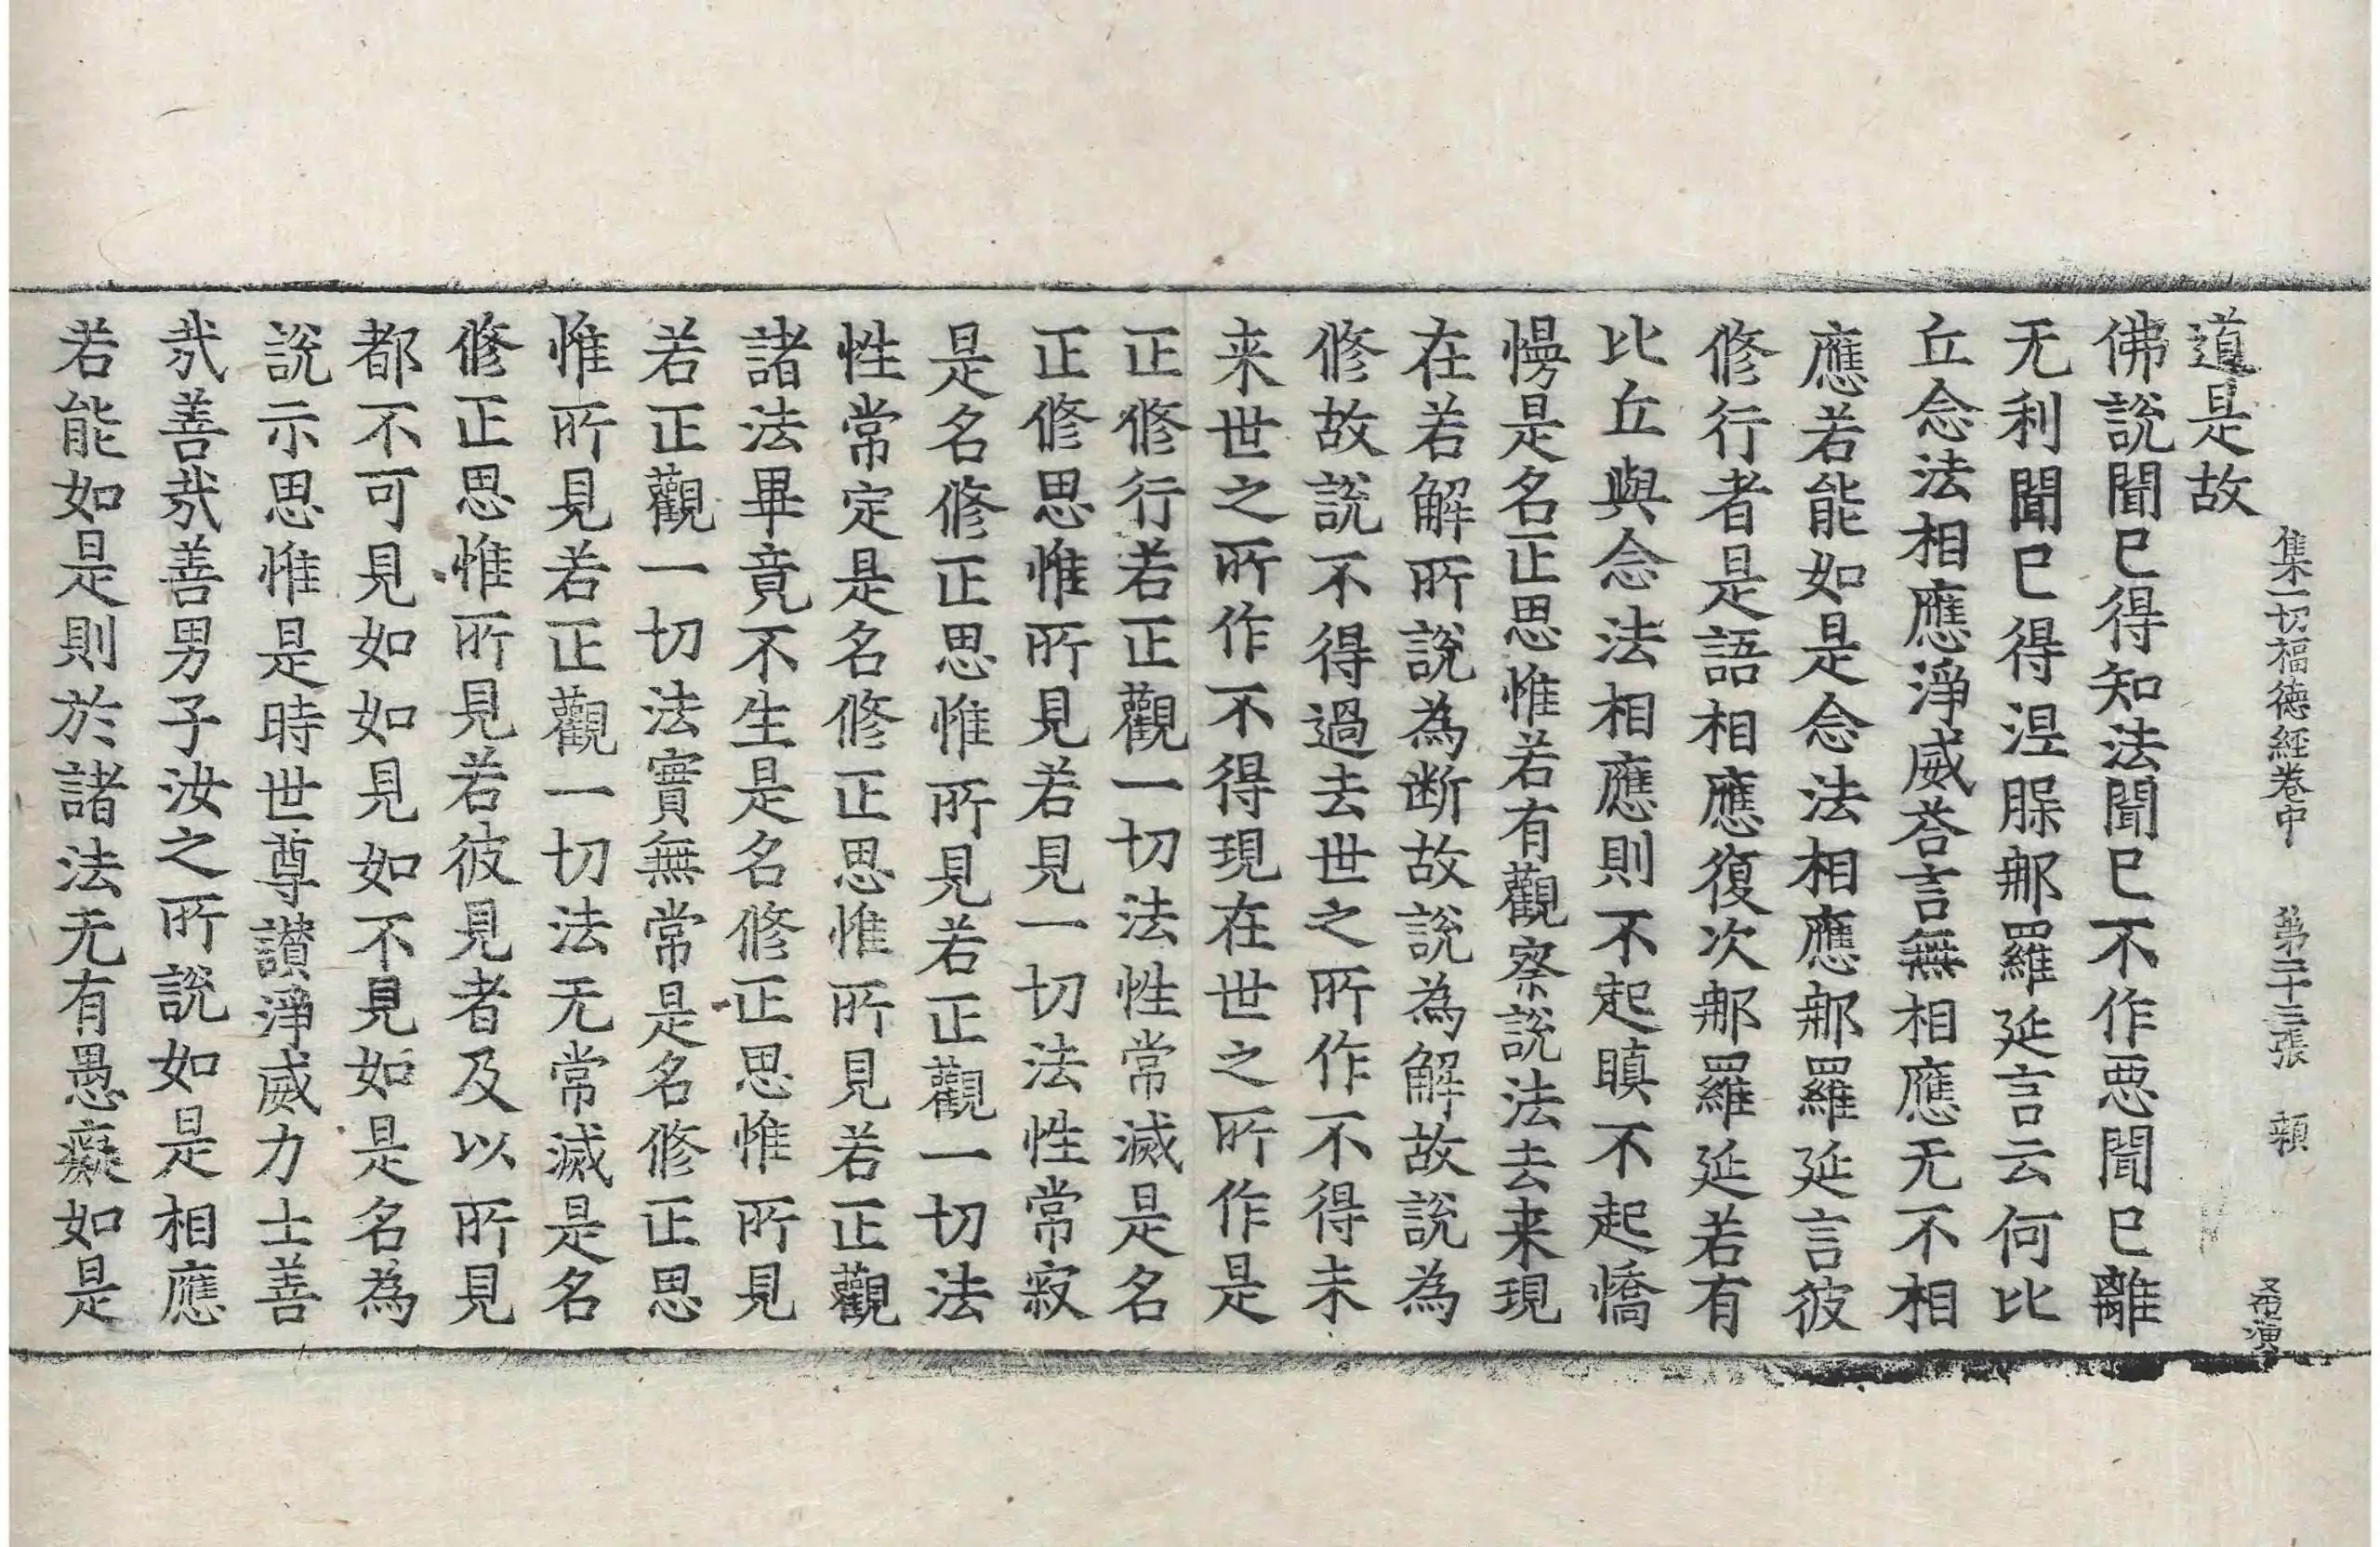 集一切福德経卷中 第二十三張 頼
道是故
佛說聞巳得知法聞巳不作惡聞巳離
无利聞巳得涅𦙾𨚗羅延言云何比
丘念法相應淨威荅言無相應无不相
應若能如是念法相應𨚗羅延言彼
修行者是語相應復次𨚗羅延若有
比丘與念法相應則不起瞋不起憍
慢是名正思惟若有觀察說法去来現
在若解所說為断故說為解故說為
修故說不得過去世之所作不得未
来世之所作不得現在世之所作是
正修行若正觀一切法性常滅是名
正修思惟所見若見一切法性常寂
是名修正思惟所見若正觀一切法
性常定是名修正思惟所見若正觀
諸法畢竟不生是名修正思惟所見
若正觀一切法實無常是名修正思
惟所見若正觀一切法无常滅是名
修正思惟所見若彼見者及以所見
都不可見如如見如不見如是名為
說示思惟是時世尊讃淨威力士善
㢤善㢤善男子汝之所說如是相應
若能如是則於諸法无有愚癡如是